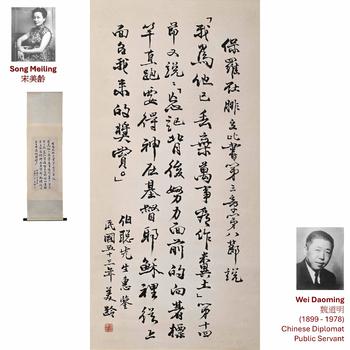 Song Meiling
宋美齡
保羅在腓立比書第三章第八節說
「我為他已丟棄萬事看作糞土」第十四
節又說「忘記背後努力面前的向著標
竿直跑要得神在基督耶穌裡從上
面召我來的獎賞。」
伯聰先生惠鑒
民國五十三年 美齡
Wei Daoming
魏道明
(1899 - 1978)
Chinese Diplomat
Public Servant